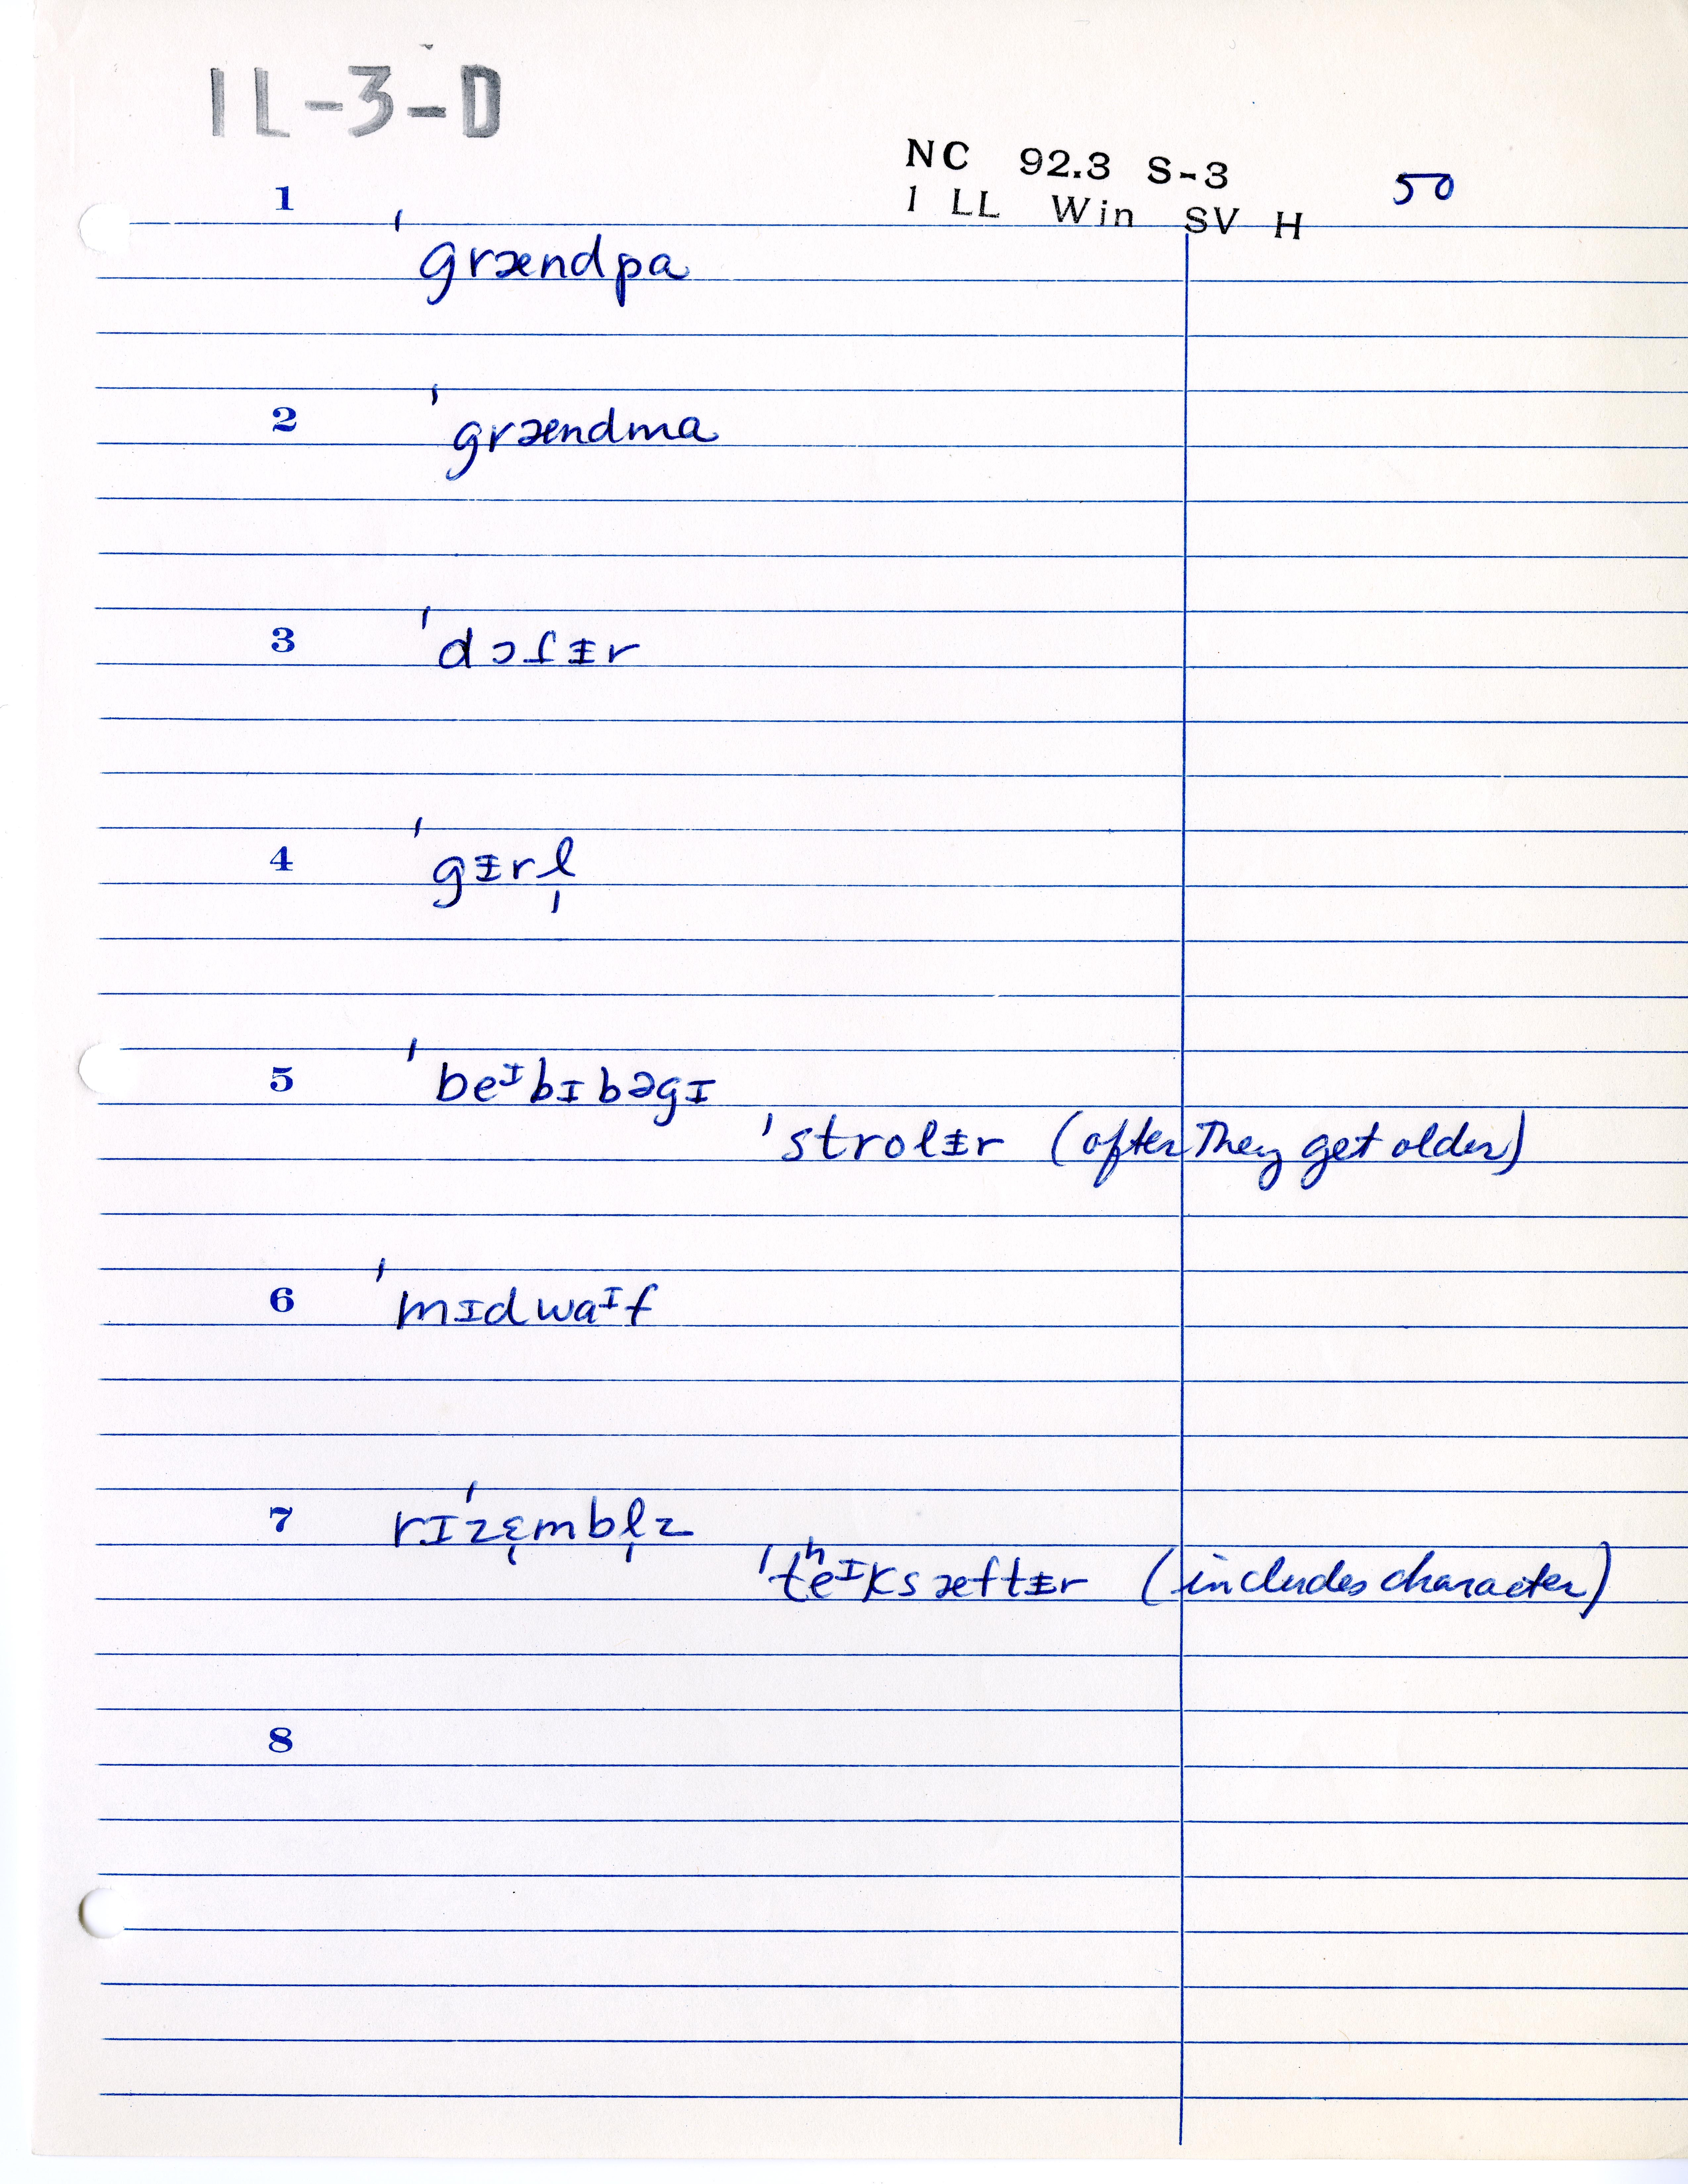 IL-3-D
NC 92.3 S-3 50
1 LL Win SV H
1 ˈgrændpa
2 ˈgrændma
3 ˈdɔfᵻr
4 ˈgᵻrl̩
5 ˈbeᶦbɪbəgɪ
ˈstrolᵻr (after They get older)
6 ˈmɪdwaᶦf
7 rɪˈzɛ̩mbl̩z
ˈtʰeᶦksæftᵻr (includes character)
8